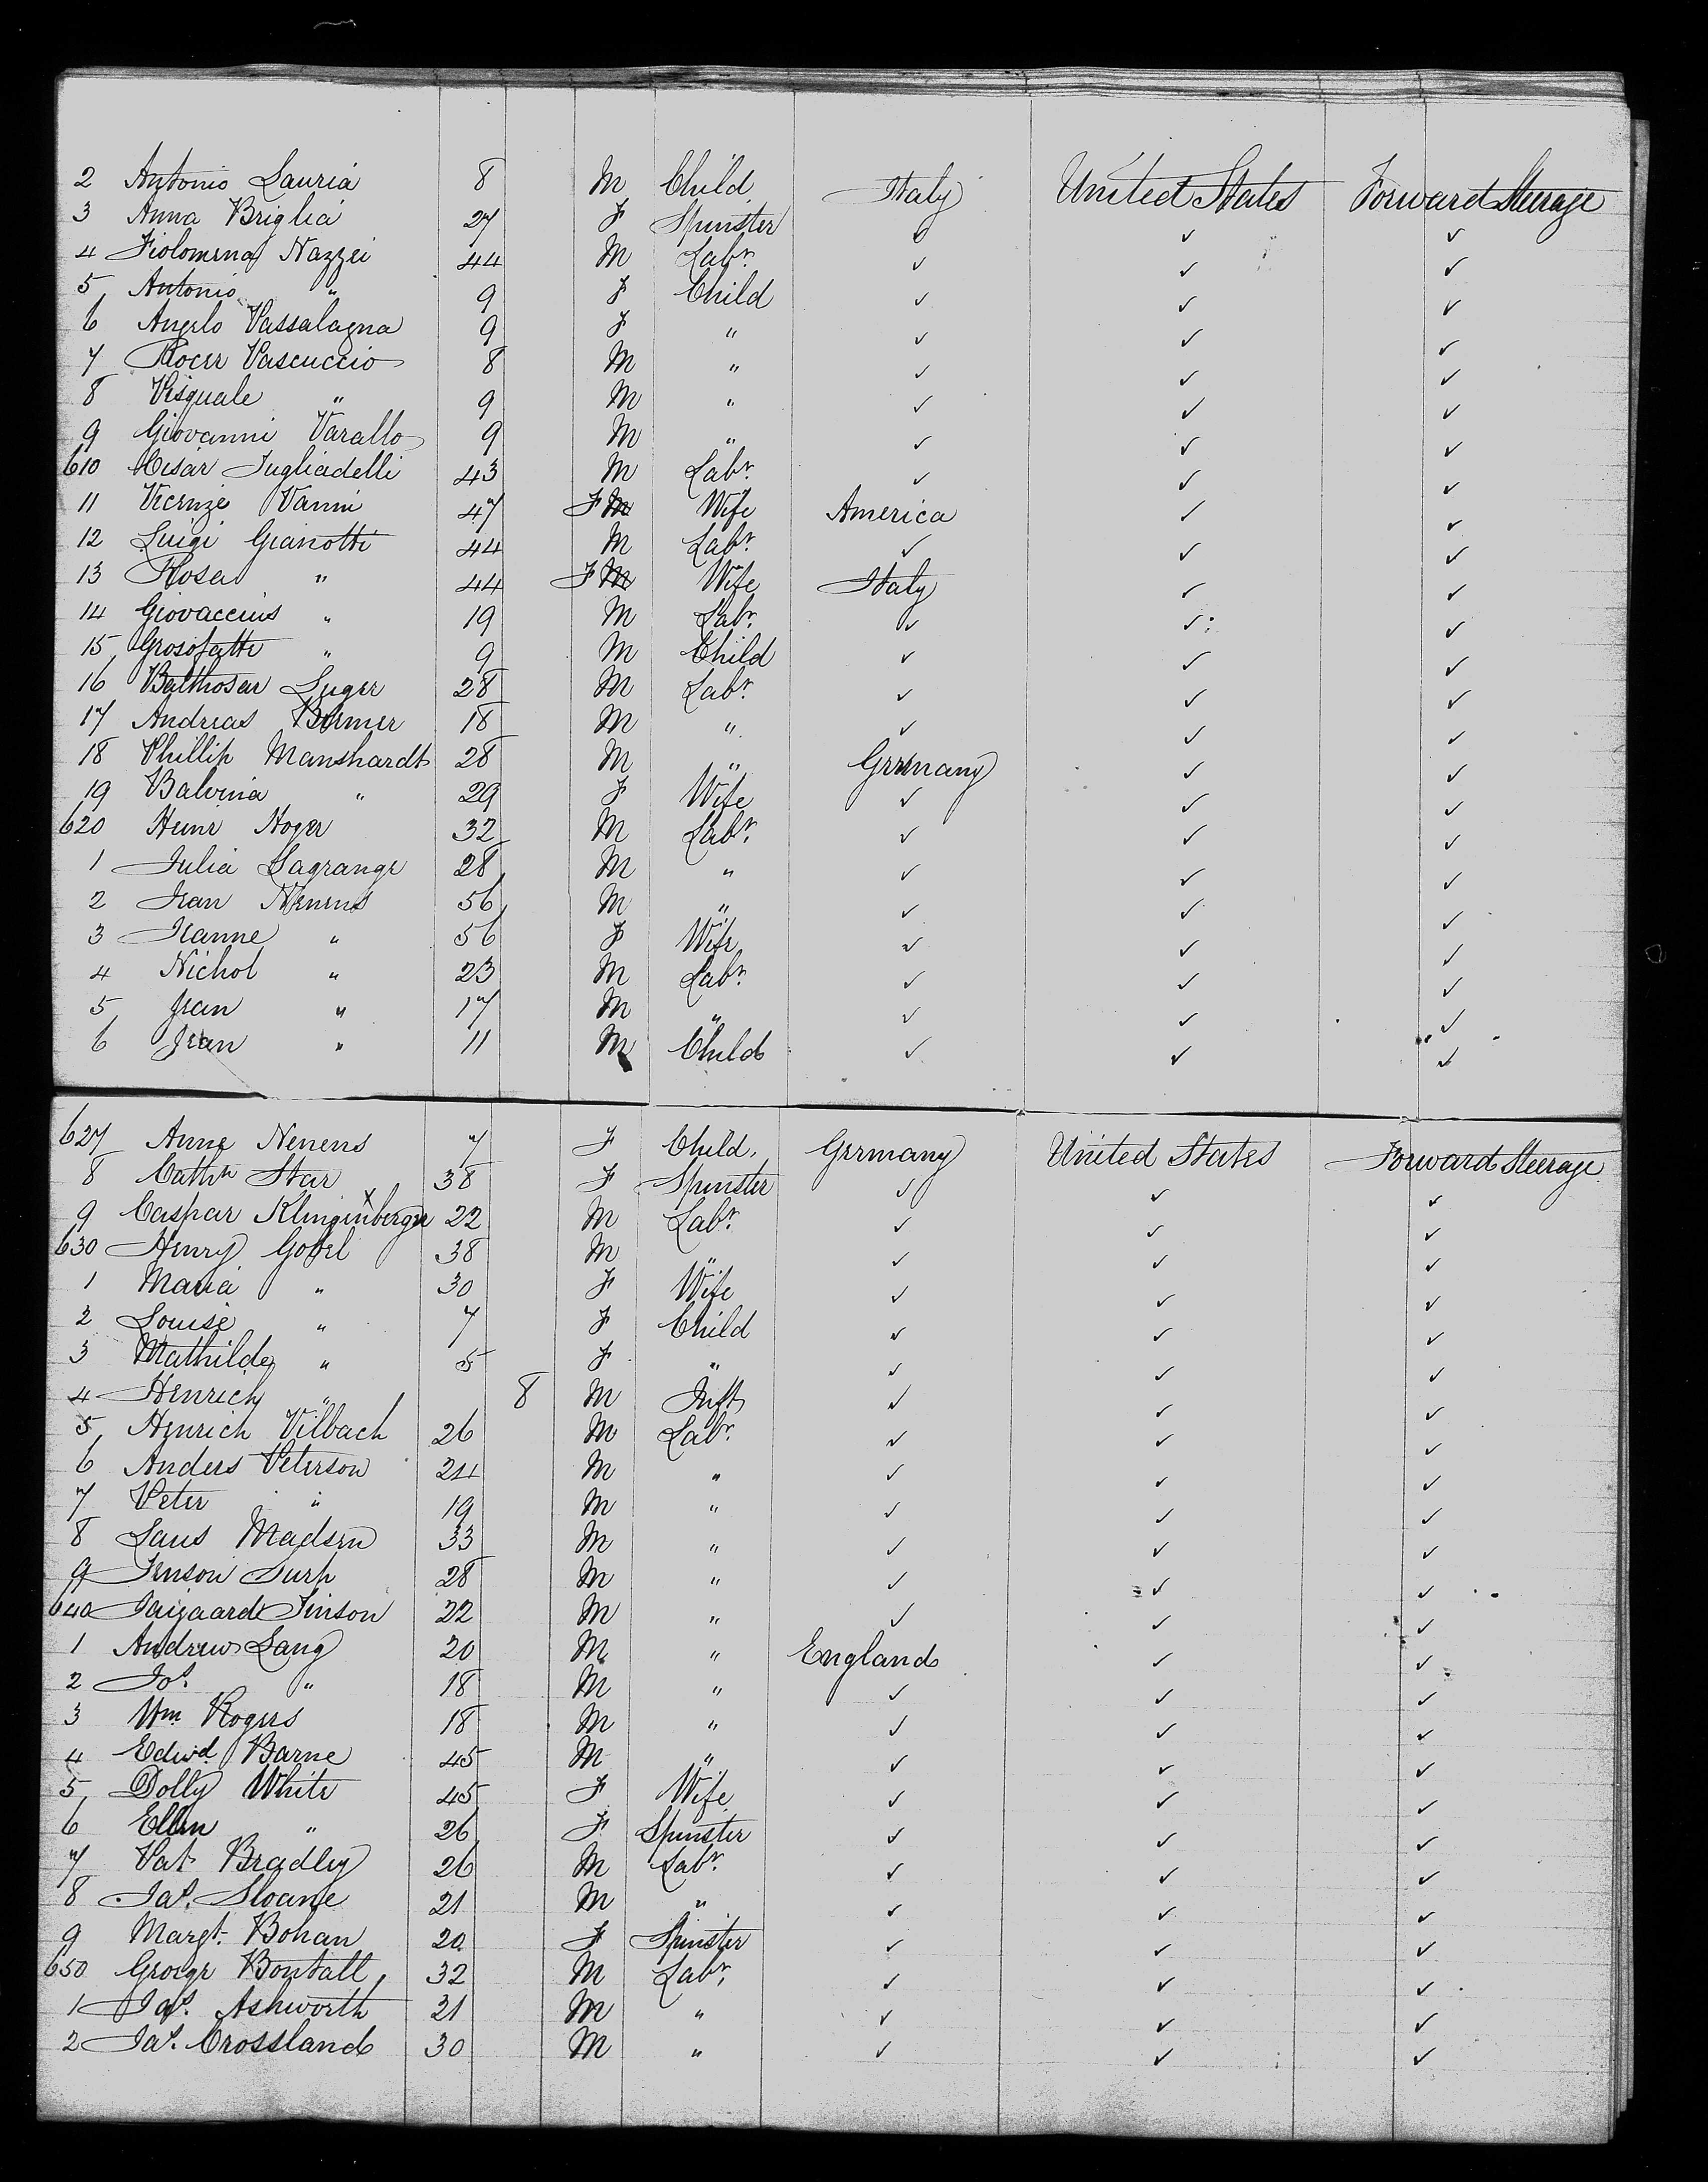 2 Antonio Lauria 8 M Child Italy United States Forward Steerage
3 Anna Briglia 27 F Spinster ✓ ✓ ✓
4 Fiolomena Nazzei 44 M Labr. ✓ ✓ ✓
5 Antonio " 9 F Child ✓ ✓ ✓
6 Angelo Vassalagna 9 F " ✓ ✓ ✓
7 Rocer Pascuccio 8 M " ✓ ✓ ✓
8 Pasquale " 9 M " ✓ ✓ ✓
9 Giovanni Varallo 9 M " ✓ ✓ ✓
610 Cesar Tugliadelli 43 M Labr. ✓ ✓ ✓
11 Vicenze Vanni 47 F M Wife America ✓ ✓
12 Luigi Gianotti 44 M Labr. ✓ ✓ ✓
13 Rosa " 44 F M Wife Italy ✓ ✓
14 Giovaccius " 19 M Labr. ✓ ✓ ✓
15 Grosofatte " 9 M Child ✓ ✓ ✓
16 Balthosar Luger 28 M Labr. ✓ ✓ ✓
17 Andreas 18 M " ✓ ✓ ✓
18 Phillip Manshardt 28 M " Germany ✓ ✓
19 Balvina " 29 F Wife ✓ ✓ ✓
620 Heinr Hoger 32 M Labr. ✓ ✓ ✓
1 Julia Lagrange 28 M " ✓ ✓ ✓
2 Jean Nenens 56 M " ✓ ✓ ✓
3 Jeanne " 56 F Wife ✓ ✓ ✓
4 Nichol " 23 M Labr. ✓ ✓ ✓
5 Jean " 17 M " ✓ ✓ ✓
6 Jean " 11 M Child ✓ ✓ ✓
627 Anne Nenens 7 F Child. Germany United States Forward Steerage
8 Cathn Star 38 F Spinster ✓ ✓ ✓
9 Caspar Klinginberger 22 M Labr. ✓ ✓ ✓
630 Henry Gobel 38 M " ✓ ✓ ✓
1 Maria " 30 F Wife ✓ ✓ ✓
2 Louise " 7 F Child ✓ ✓ ✓
3 Mathilde " 5 F " ✓ ✓ ✓
4 Henrich " 8 M Inft ✓ ✓ ✓
5 Henrich Vilbach 26 M Labr. ✓ ✓ ✓
6 Anders Peterson 24 M " ✓ ✓ ✓
7 Peter " 19 M " ✓ ✓ ✓
8 Laus Madsen 33 M " ✓ ✓ ✓
9 Jenson Surp 28 M " ✓ ✓ ✓
640 Jaigaard Jinson 22 M " ✓ ✓ ✓
1 Andrew Lang 20 M " England ✓ ✓
2 Jos. " 18 M " ✓ ✓ ✓
3 Wm. Rogers 18 M " ✓ ✓ ✓
4 Edwd. Barne 45 M " ✓ ✓ ✓
5 Dolly White 45 F Wife ✓ ✓ ✓
6 Ellen " 26 F Spinster ✓ ✓ ✓
7 Pat Bradley 26 M Labr. ✓ ✓ ✓
8 Jas. Sloane 21 M " ✓ ✓ ✓
9 Margt. Bohan 20 F Spinster ✓ ✓ ✓
650 Groegr Bontall 32 M Labr. ✓ ✓ ✓
1 Jas. Ashworth 31 M " ✓ ✓ ✓
2 Jas. Crossland 30 M " ✓ ✓ ✓